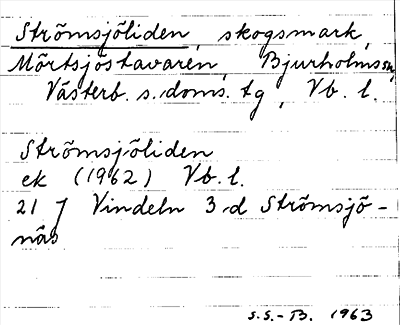 Strömsjöliden, skogsmark,
Mörtsjöstavaren, Bjurholmssn,
Västerb. s. doms. tg, Vb. l.
Strömsjöliden
ek (1962) Vb. l.
21 J Vindeln 3 d Strömsjö-
näs
S.S.-B. 1963